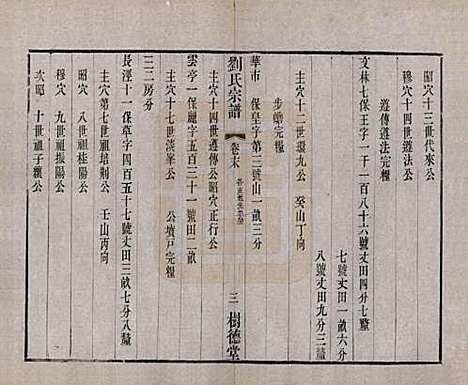 昭穴十三世代來公
穆穴十四世遵法公
遵傳遵法完糧
文林七保王字一千一百八十六號丈田四分七釐
七號丈田一畝六分
八號丈田九分三釐
主穴十二世環九公 癸山丁向
步蟾完糧
華市一保皇字第三號山一畝三分
劉氏宗譜
卷末
三
樹德堂
主穴十四世遵傳公昭穴正行公
雲亭一保麗字五百三十一號田二畝
主穴十七世淡峯公 公墳戶完糧
三二房分
長涇十一保草字四百五十七號丈田三畝七分八釐
主穴第七世祖培荆公 壬山丙向
昭穴 八世祖桂陽公
穆穴 九世祖振陽公
次昭 十世祖子纘公